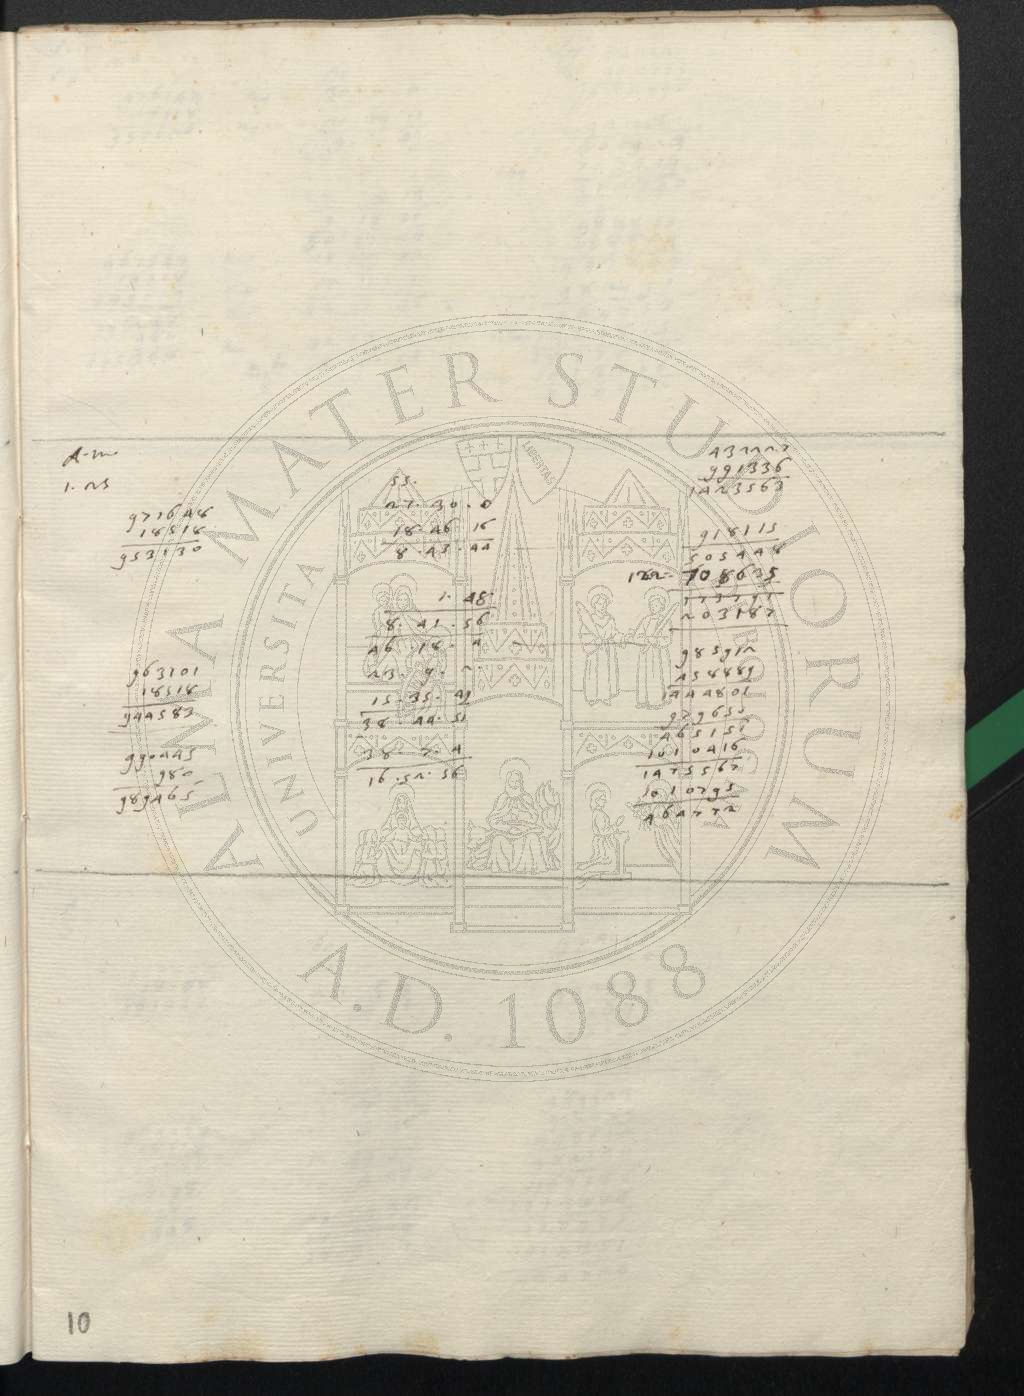 1. 25
971648
18518
953130
963101
18518
944583
990445
980
989465
55.
27. 30. 0
18. 46 16
8. 43. 44
1. 48
8. 41. 56
46. 18. 4
23. 9. 2
15. 35. 49
38. 44. 51
38. 7. 4
16. 52. 56
432227
991336
1423563
918115
505448
182- 708635
173791
203187
985912
458889
1444801
979650
465151
1010416
1475567
1010795
464772
ALMA MATER STUDIORUM
UNIVERSITA
DI BOLOGNA
LIBERTAS
A.D. 1088
10